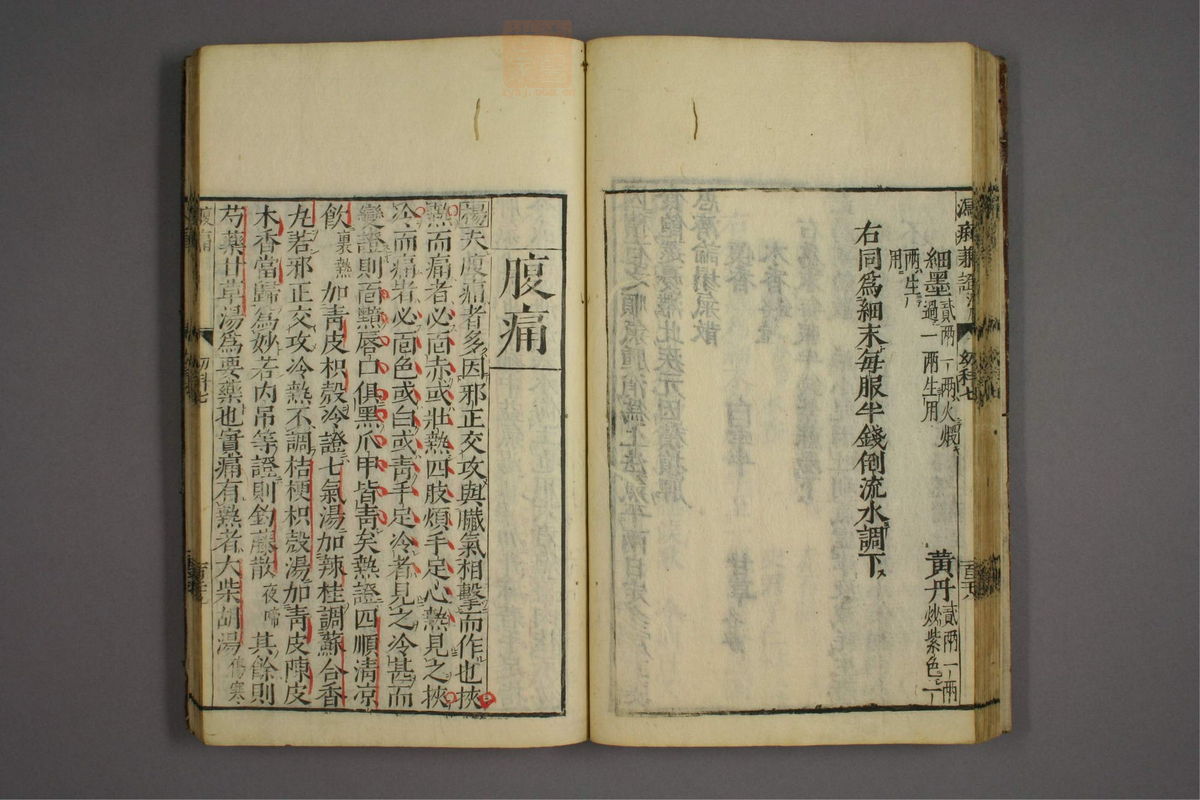 細墨貳兩一兩火煅過一兩生用
黃丹貳兩一兩炒紫色一兩生用
右同爲細末每服半錢倒流水調下
腹痛
湯夫腹痛者多因邪正交攻與臟氣相擊而作也挾
熱而痛者必面赤或壯熱四肢煩手足心熱見之挾
冷而痛者必面色或白或靑手足冷者見之冷甚而
變證則面黯唇口俱黑爪甲皆靑矣熱證四順淸凉
飮裏熱加靑皮枳殼冷證七氣湯加辣桂調蘇合香
丸若邪正交攻冷熱不調桔梗枳殼湯加靑皮陳皮
木香當歸爲妙若內吊等證則釣藤散夜啼其餘則
芍藥甘草湯爲要藥也實痛有熱者大柴胡湯傷寒
幼科七